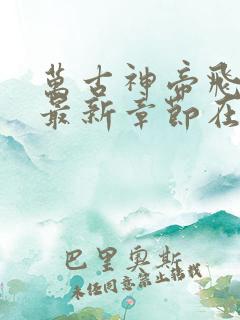 萬古神帝飛
最新章節在
巴里奧斯
未经同意禁止转载